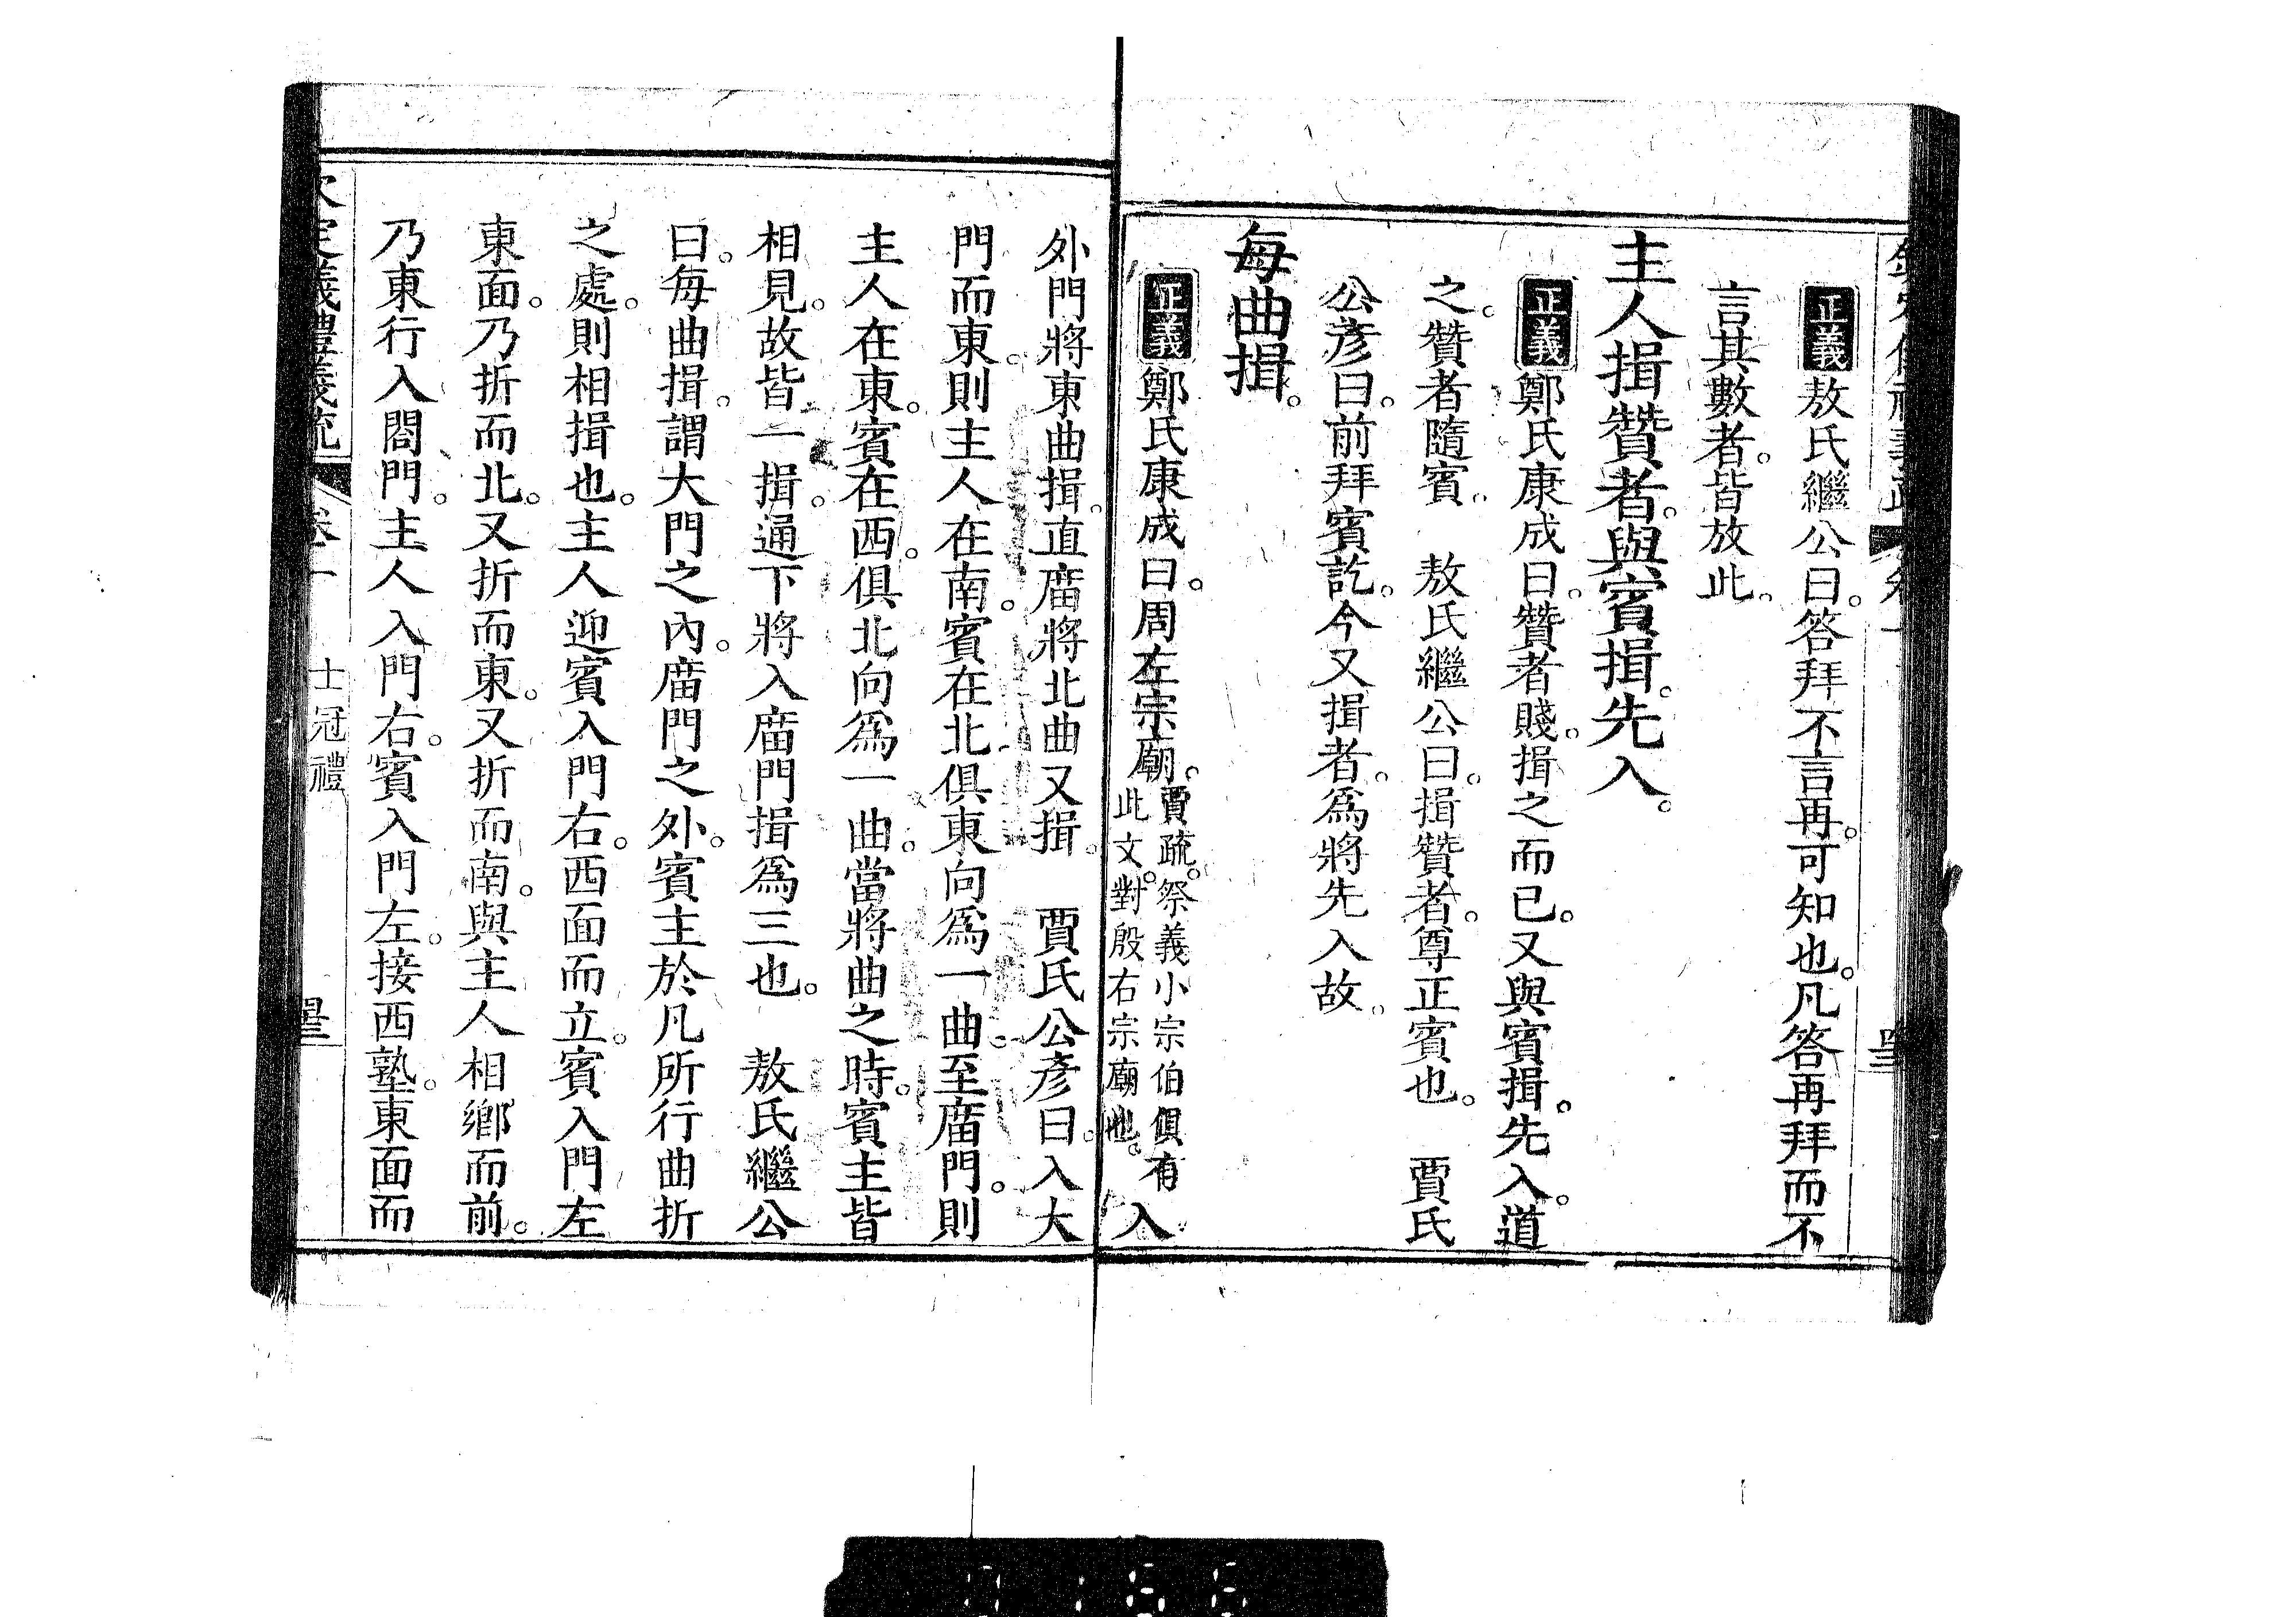 正義敖氏繼公曰。答拜不言再。可知也。凡答再拜而不
言其數者。皆放此。
主人揖贊者。與賓揖。先入。
正義鄭氏康成曰。贊者賤。揖之而已。又與賓揖。先入。道
之。贊者隨賓。 敖氏繼公曰。揖贊者。尊正賓也。 賈氏
公彥曰。前拜賓訖。今又揖者。爲將先入故。
每曲揖。
正義鄭氏康成曰。周左宗廟。賈疏。祭義小宗伯俱有此文。對殷右宗廟也。入
外門將東曲揖。直廟將北曲又揖。 賈氏公彥曰。入大
門而東。則主人在南。賓在北。俱東向爲一曲。至廟門。則
主人在東。賓在西。俱北向爲一曲。當將曲之時。賓主皆
相見。故皆一揖。通下將入廟門揖爲三也。 敖氏繼公
曰。每曲揖。謂大門之內。廟門之外。賓主於凡所行曲折
之處。則相揖也。主人迎賓入門右。西面而立。賓入門左
東面。乃折而北。又折而東。又折而南。與主人相鄉而前。
乃東行入閤門。主人入門右。賓入門左。接西塾。東面而
義禮義疏 卷一 士冠禮